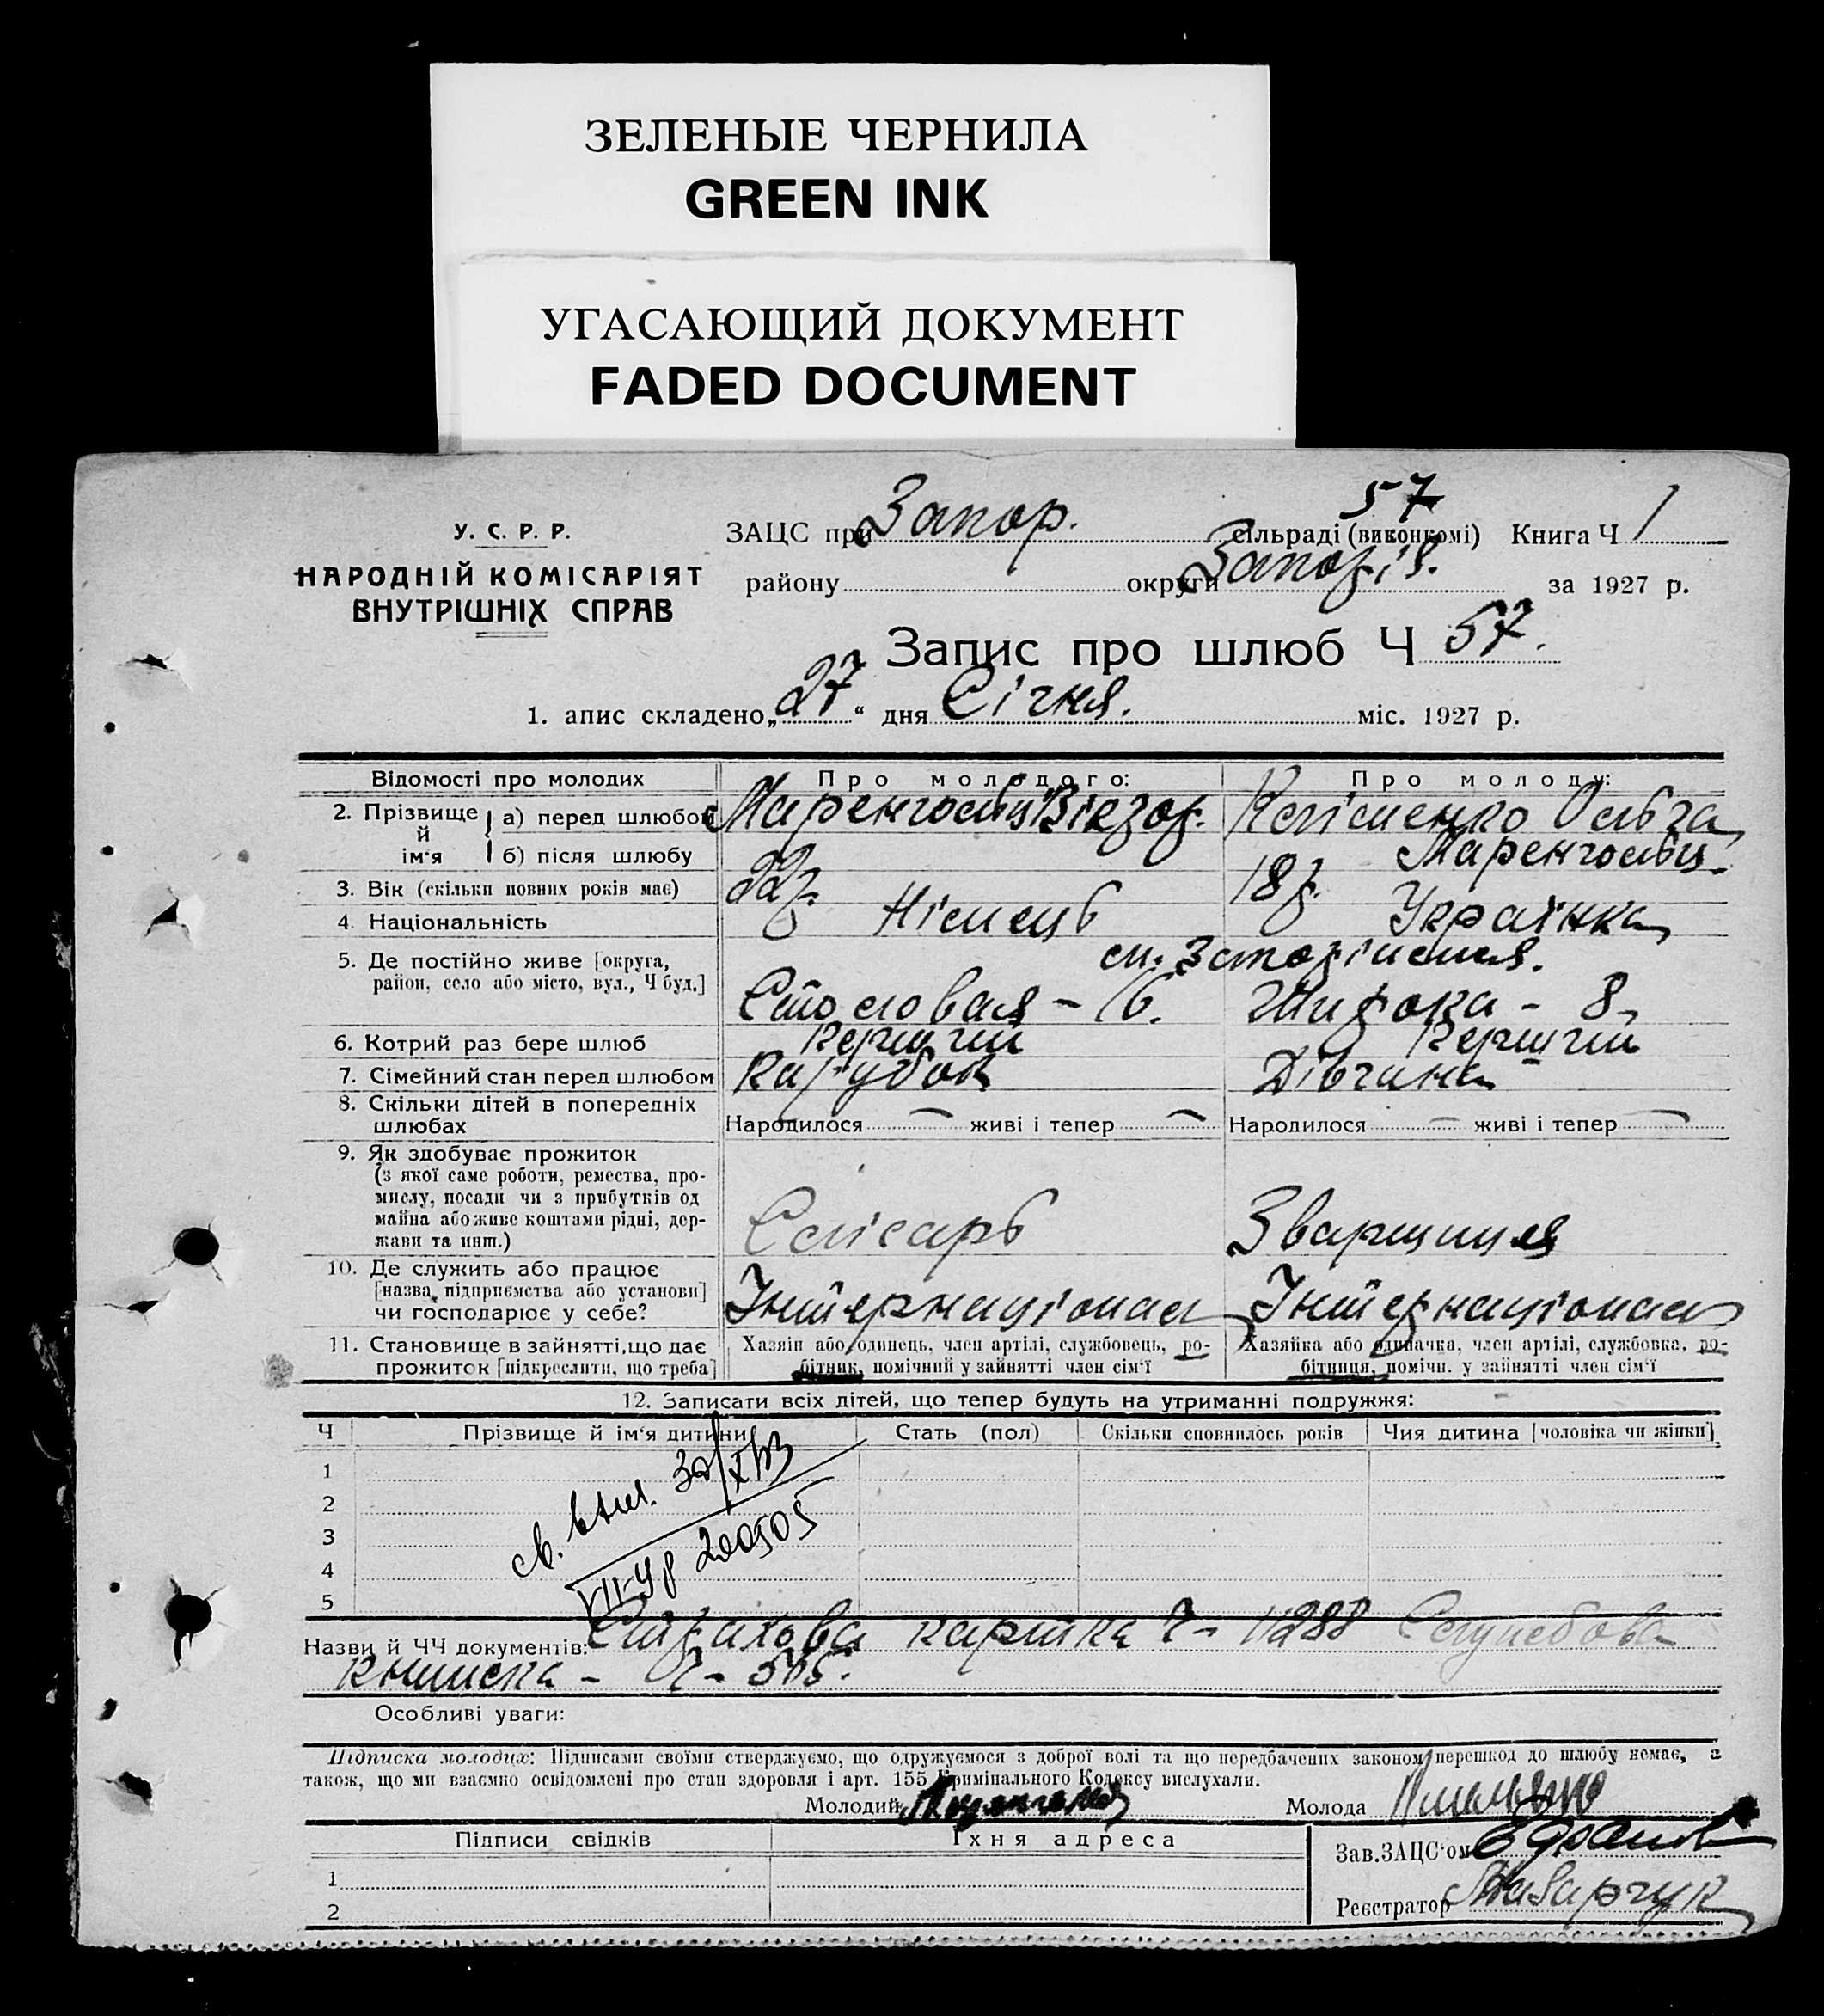 ЗЕЛЕНЫЕ ЧЕРНИЛА
GREEN INK
УГАСАЮЩИЙ ДОКУМЕНТ
FADED DOCUMENT
57
У. С. Р. Р.
НАРОДНІЙ КОМІСАРІЯТ
ВНУТРІШНІХ СПРАВ
ЗАЦС при Запор. сільраді (виконкомі) Книга Ч 1
району округи Запоріз. за 1927 р.
Запис про шлюб Ч 57.
1. апис складено „27“ дня Січня. міс. 1927 р.
Відомості про молодих Про молодого: Про молоду:
2. Прізвище й ім‘я
а) перед шлюбом Віктор. Клименко Ольга
б) після шлюбу
3. Вік (скільки повних років має) 22р. 18р.
4. Національність Німець Українка
5. Де постійно живе [округа, район, село або місто, вул., Ч буд.] м. Запоріжжя.
Столовая – 16. Широка – 8
6. Котрий раз бере шлюб Перший Перший
7. Сімейний стан перед шлюбом Парубок Дівчина
8. Скільки дітей в попередніх шлюбах Народилося — живі і тепер — Народилося — живі і тепер —
9. Як здобуває прожиток
(з якої саме роботи, ремества, про-
мислу, посади чи з прибутків од
майна або живе коштами рідні, дер-
жави та инш.)
Слісарь
10. Де служить або працює
[назва підприємства або установи]
чи господарює у себе?
Інтернаціонал Інтернаціонал
11. Становище в зайнятті, що дає
прожиток [підкреслити, що треба]
Хазяїн або одинець, член артілі, службовець, ро-
бітник, помічний у зайнятті член сім‘ї
Хазяйка або одиначка, член артілі, службовка, ро-
бітниця, помічн. у зайнятті член сім‘ї
12. Записати всіх дітей, що тепер будуть на утриманні подружжя:
Ч Прізвище й ім‘я дитини Стать (пол) Скільки сповнилось років Чия дитина [чоловіка чи жінки]
1
2
3
4
5
Назви й ЧЧ документів: Страхова картка Ч – 11288 Службова
книжка – Ч –
Особливі уваги:
Підписка молодих: Підписами своїми стверджуємо, що одружуємося з доброї волі та що передбачених законом перешкод до шлюбу немає, а
також, що ми взаємно освідомлені про стан здоровля і арт. 155 Кримінального Кодексу вислухали.
Молодий Молода
Підписи свідків Їхня адреса
Зав. ЗАЦС‘ом
1
Реєстратор
2